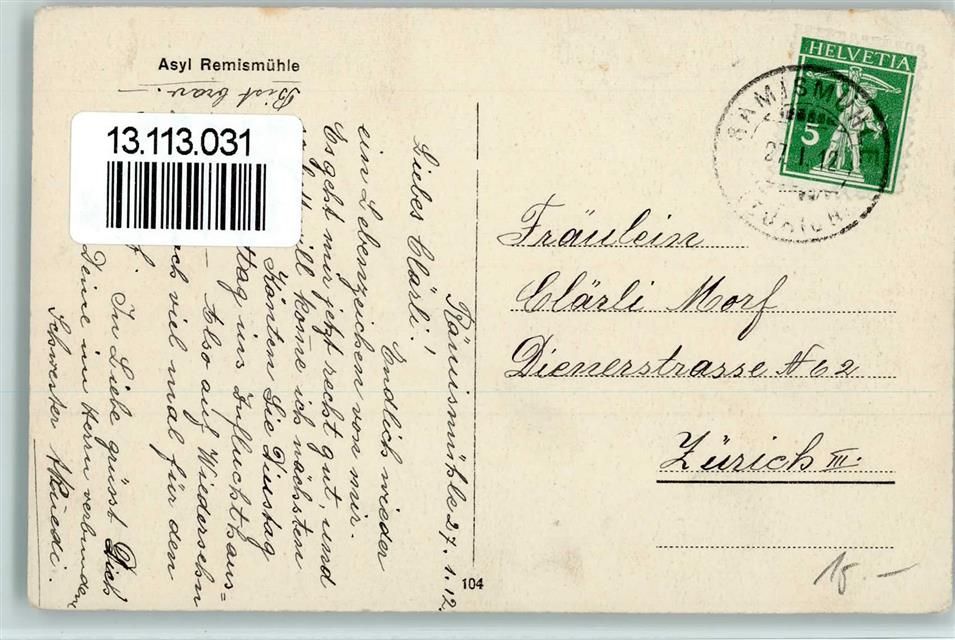 Asyl Remismühle
Bist brav.—
13.113.031
Rämismühle 27.1.12.
Liebes Clärli!
Endlich wieder
ein Lebenzeichen von mir.
Es geht mir jetz recht gut, und
will kome ich nächsten
Könten Sie Dinstag
tag ins Zufluchthaus=
— Also auf Wiedersehn
viel mal für den
In Liebe grüsst Dich
Deine im Herrn verbunden
Schwester
HELVETIA
5
RAMISMÜHLE
27.I.12
(ZÜRICH)
Fräulein
Clärli Morf
Dienerstrasse N 62
Zürich III.
104
15.—